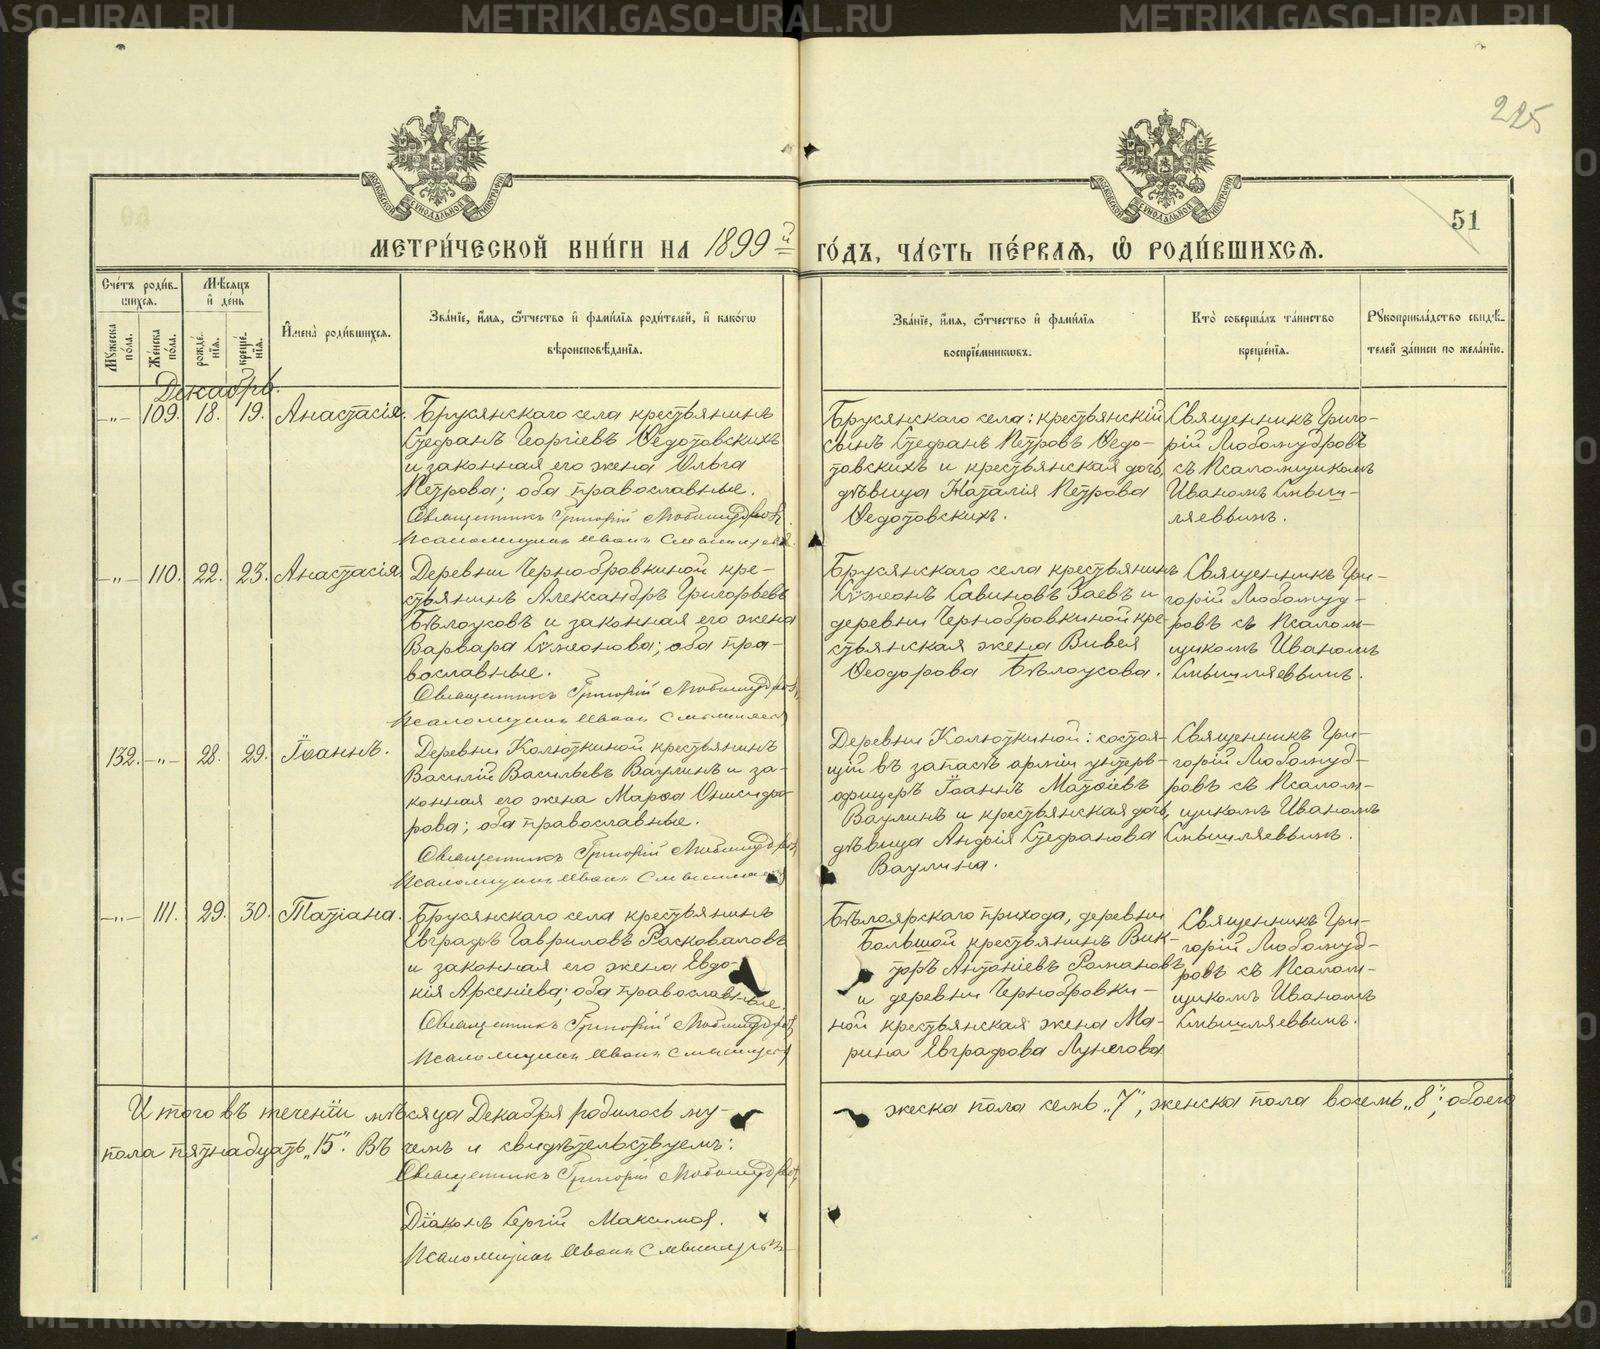 METRIKI.GASO-URAL.RU
225
51
МЕТРИ́ЧЕСКОЙ КНИ́ГИ НА 1899й ГО́ДЪ, ЧА́СТЬ ПЕ́РВАЯ, Ѡ РОДИ́ВШИХСЯ.
Сче́тъ роди́вшихся.
Мѣ́сяцъ и де́нь
Му́жеска по́ла.
Же́нска по́ла.
рожде́нїя.
креще́нїя.
Имена̀ роди́вшихся.
Зва́нїе, и́мя, ѻ́тчество и фами́лїя роди́телей, и како́гѡ
вѣроисповѣ́данїя.
Зва́нїе, и́мя, ѻ́тчество и фами́лїя
воспрїе́мниковъ.
Кто̀ соверша́лъ та́инство
креще́нїя.
Рꙋкоприкла́дство свидѣ́-
телей за́писи по жела́нїю.
Декабрь.
-„- 109. 18. 19. Анастасія.
Брусянскаго села крестьянинъ
Стефанъ Георгіевъ Ѳедотовскихъ
и законная его жена Ольга
Петрова; оба православные.
Священникъ Григорій Любомудровъ.
Псаломщикъ Иванъ Смышляевъ
Брусянскаго села: крестьянскій
сынъ Стефанъ Петровъ Ѳедо-
товскихъ и крестьянская дочь,
дѣвица Наталія Петрова
Ѳедотовскихъ.
Священникъ Григо-
рій Любомудровъ
съ Псаломщикомъ
Иваномъ Смыш-
ляевымъ.
-„- 110. 22. 23. Анастасія
Деревни Чернобровкиной кре-
стьянинъ Александръ Григорьевъ
Бѣлоусовъ и законная его жена
Варвара Сѵмеонова; оба пра-
вославные.
Священникъ Григорій Любомудровъ,
Псаломщикъ Иванъ Смышляевъ
Брусянскаго села крестьянинъ
Сѵмеонъ Савиновъ Заевъ и
деревни Чернобровкиной кре-
стьянская жена Вивея
Ѳеодорова Бѣлоусова.
Священникъ Гри-
горій Любомуд-
ровъ съ Псалом-
щикомъ Иваномъ
Смышляевымъ.
132. -„- 28. 29. Іоаннъ.
Деревни Колюткиной крестьянинъ
Василій Васильевъ Ваулинъ и за-
конная его жена Марѳа Онисифо-
рова; оба православные.
Священникъ Григорій Любомудровъ,
Псаломщикъ Иванъ Смышляевъ
Деревни Колюткиной: состоя-
щій въ запасѣ арміи унтеръ-
офицеръ Іоаннъ Матѳіевъ
Ваулинъ и крестьянская дочь,
дѣвица Андрія Стефанова
Ваулина.
Священникъ Гри-
горій Любомуд-
ровъ съ Псалом-
щикомъ Иваномъ
Смышляевымъ.
-„- 111. 29. 30. Татіана.
Брусянскаго села крестьянинъ
Евграфъ Гавриловъ Расковаловъ
и законная его жена Евдо-
кія Арсеніева; оба православные.
Священникъ Григорій Любомудровъ,
Псаломщикъ Иванъ Смышляевъ
Бѣлоярскаго прихода, деревни
Большой крестьянинъ Вик-
торъ Антоніевъ Романовъ
и деревни Чернобровки-
ной крестьянская жена Ма-
рина Евграфова Лунегова
Священникъ Гри-
горій Любомуд-
ровъ съ Псалом-
щикомъ Иваномъ
Смышляевымъ.
Итого въ теченіи мѣсяца Декабря родилось му-
жеска пола семь „7“, женска пола восемь „8“; обоего
пола пятнадцать „15“. Въ чемъ и свидѣтельствуемъ:
Священникъ Григорій Любомудровъ,
Діаконъ Сергій Максимовъ.
Псаломщикъ Иванъ Смышляевъ